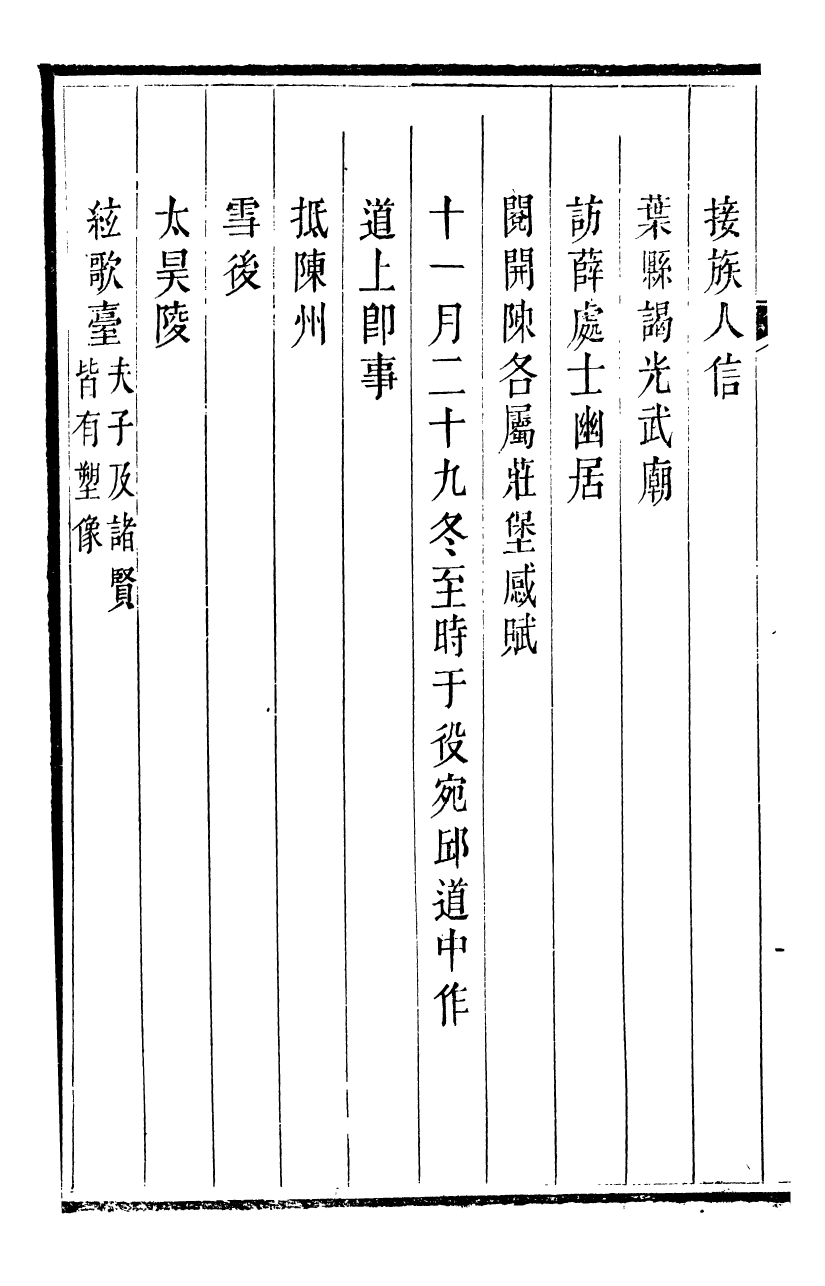 接族人信
葉縣謁光武廟
訪薛處士幽居
閱開陳各屬莊堡感賦
十一月二十九冬至時于役宛邱道中作
道上卽事
抵陳州
雪後
太昊陵
絃歌臺夫子及諸賢
皆有塑像